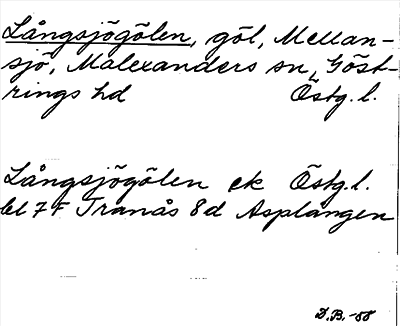 Långsjögölen, göl, Mellan-
sjö, Malexanders sn, Göst-
rings hd Östg.l.
Långsjögölen ek Östg.l.
bl 7F Tranås 8d Asplången
D.B. -58